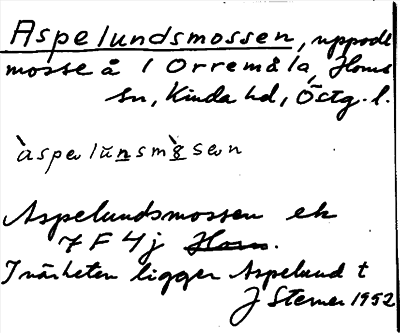 Aspelundsmossen, uppodl
mosse å 1 Orremåla, Horns
sn, Kinda hd, Östg. l.
àspelŭnsmò̱sen
Aspelundsmossen ek
7 F 4 j Horn.
I närheten ligger Aspelund t
J Sterner 1952